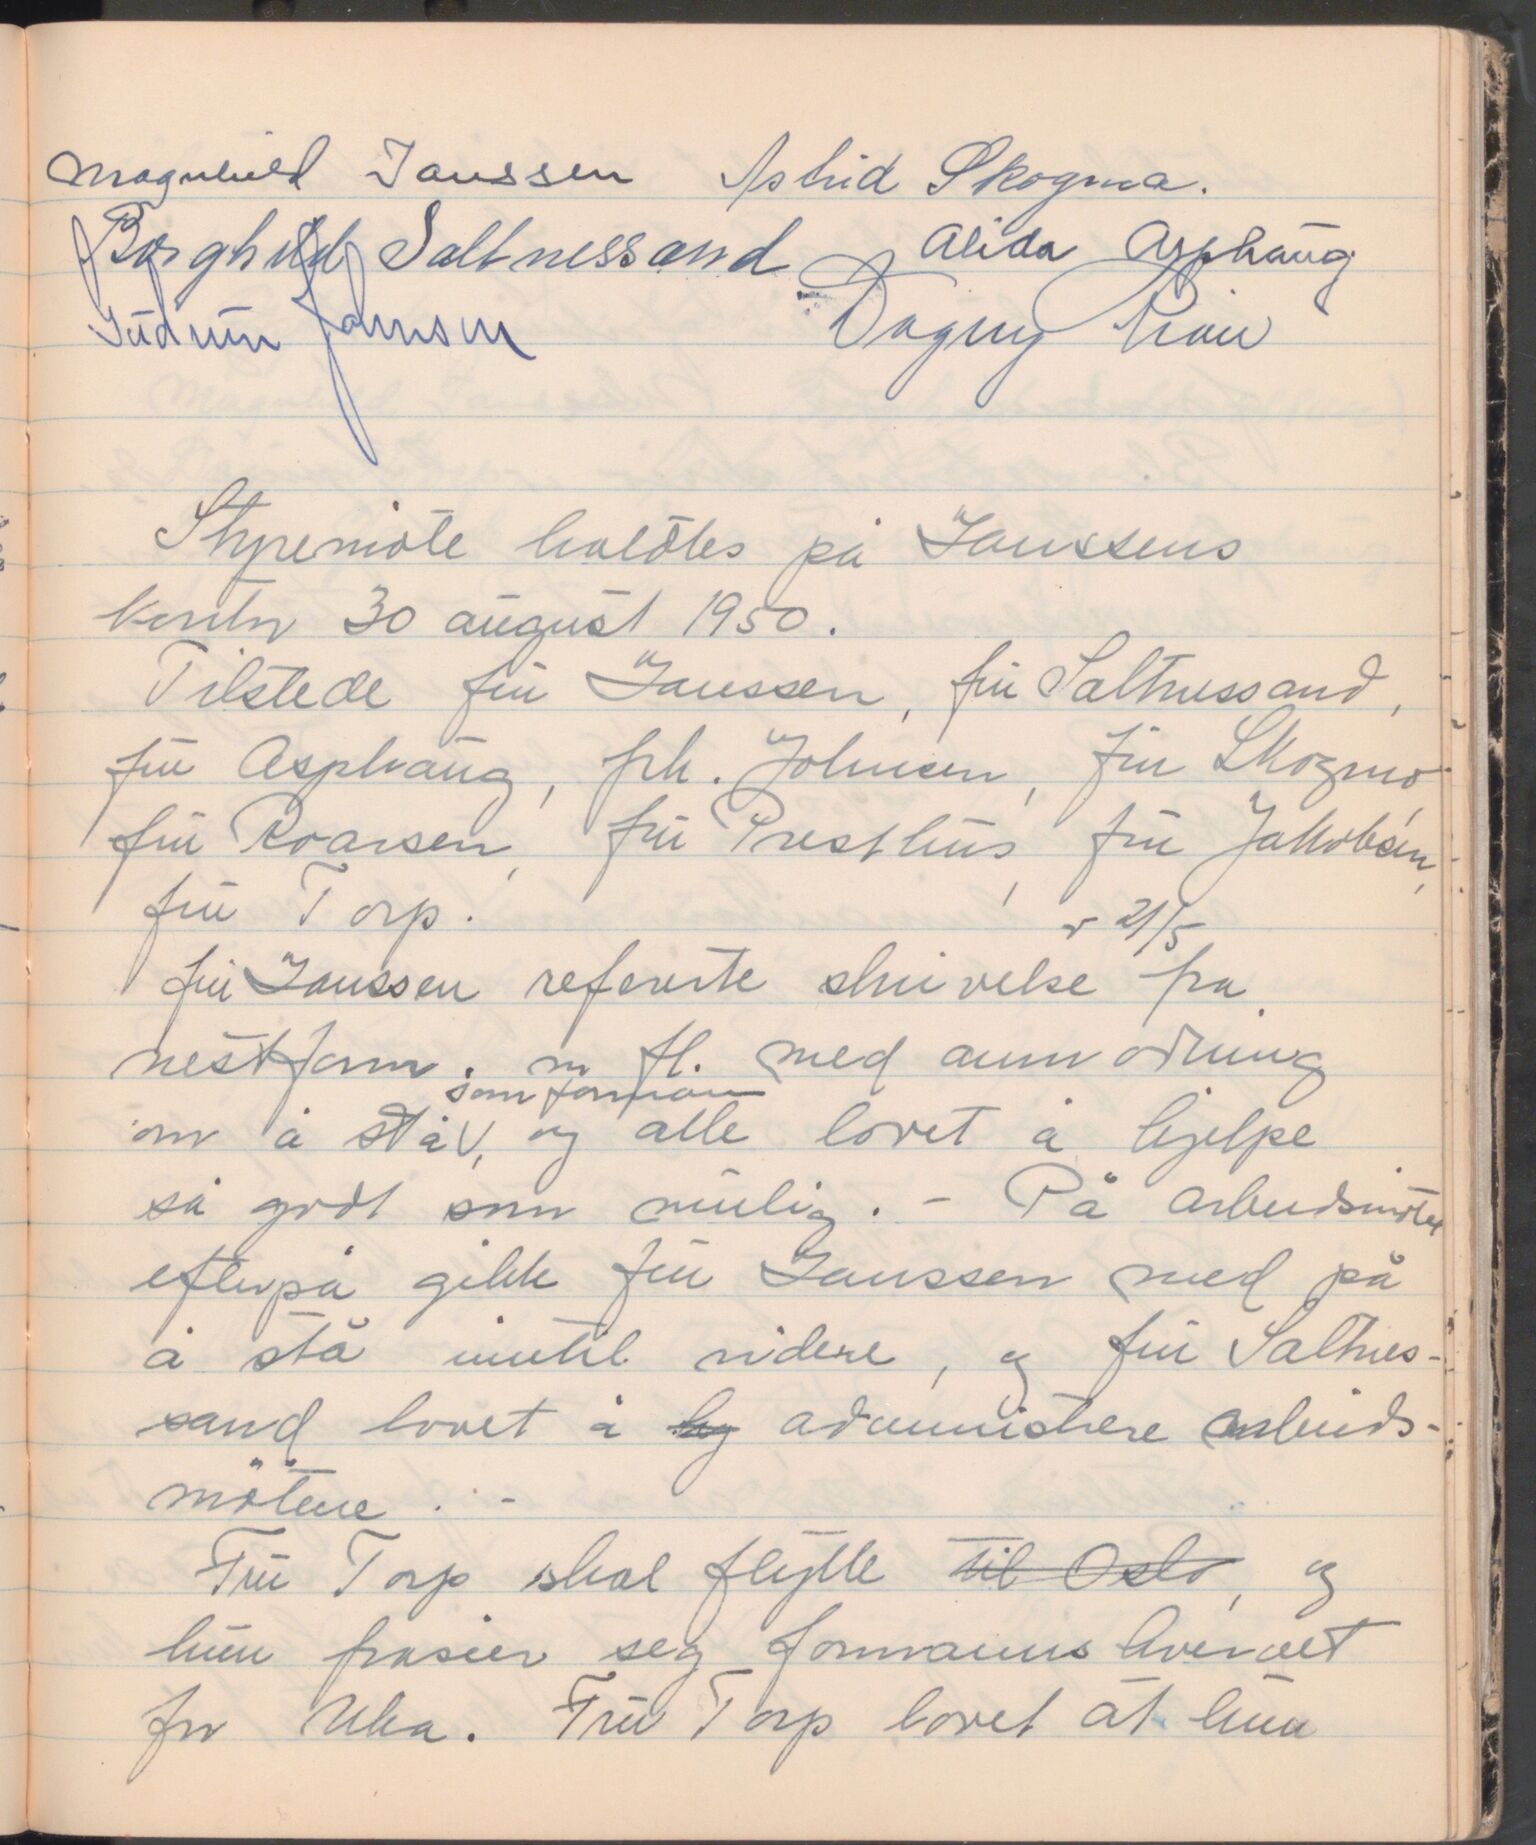 Magnhild Janssen Astrid Skogmo.
Borghild Saltnessand Alida Asphaug
Gudrun Johnsen Dagny
Styremöte holdtes på Janssens
kontor 30 august 1950.
Tilstede fru Janssen, fru Saltnessand,
fru Asphaug, frk. Johnsen, fru Skogmo
fru Roarsen, fru Presthus, fru Jakobsen,
fru Torp.
fru Janssen referete skrivelse v 21/5 fra
nestform. m fl. med anmodning
om å stå som formann, og alle lovet å hjelpe
så godt som mulig. - På arbeidsmötet
efterpå gikk fru Janssen med på
å stå inntil videre, og fru Saltnes-
sand lovet å administrere arbeids-
mötene. -
Fru Torp skal flytte til Oslo, og
hun frasier seg formannshvervet
for Uka. Fru Torp lovet at hun